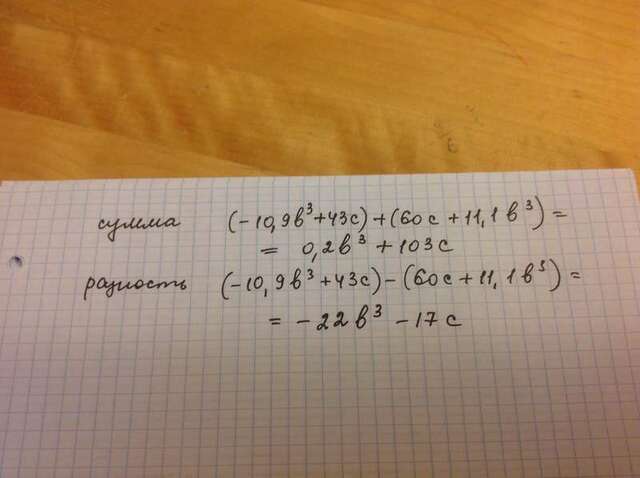 сумма (-10,9b³+43c)+(60c+11,1b³)=
= 0,2b³+103c
разность (-10,9b³+43c)-(60c+11,1b³)=
= -22b³-17c